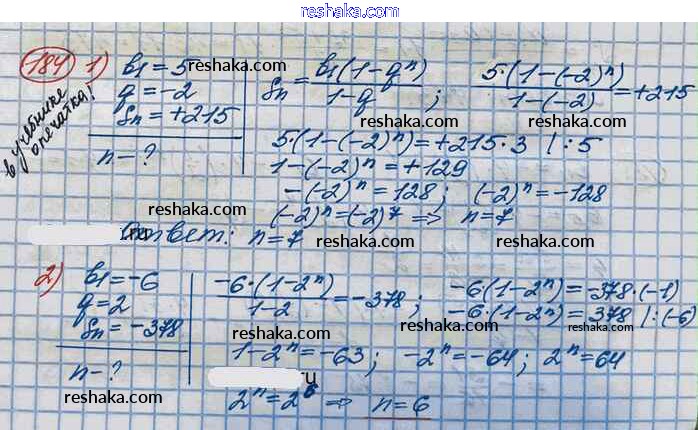 reshaka.com
184 1) b1 = 5
q = -2
Sn = +215
n - ?
в учебнике опечатка!
reshaka.com
Sn = b1(1-q^n) / 1-q ; 5·(1-(-2)^n) / 1-(-2) = +215
reshaka.com
5·(1-(-2)^n) = +215·3 | :5
1-(-2)^n = +129
-(-2)^n = 128; (-2)^n = -128
reshaka.com
(-2)^n = (-2)^7 ⇒ n = 7
reshaka.com
Ответ: n = 7
reshaka.com
2) b1 = -6
q = 2
Sn = -378
n - ?
reshaka.com
-6·(1-2^n) / 1-2 = -378; -6·(1-2^n) = -378·(-1)
-6·(1-2^n) = 378 | :(-6)
reshaka.com
reshaka.com
1-2^n = -63; -2^n = -64; 2^n = 64
reshaka.com
2^n = 2^6 ⇒ n = 6
reshaka.com